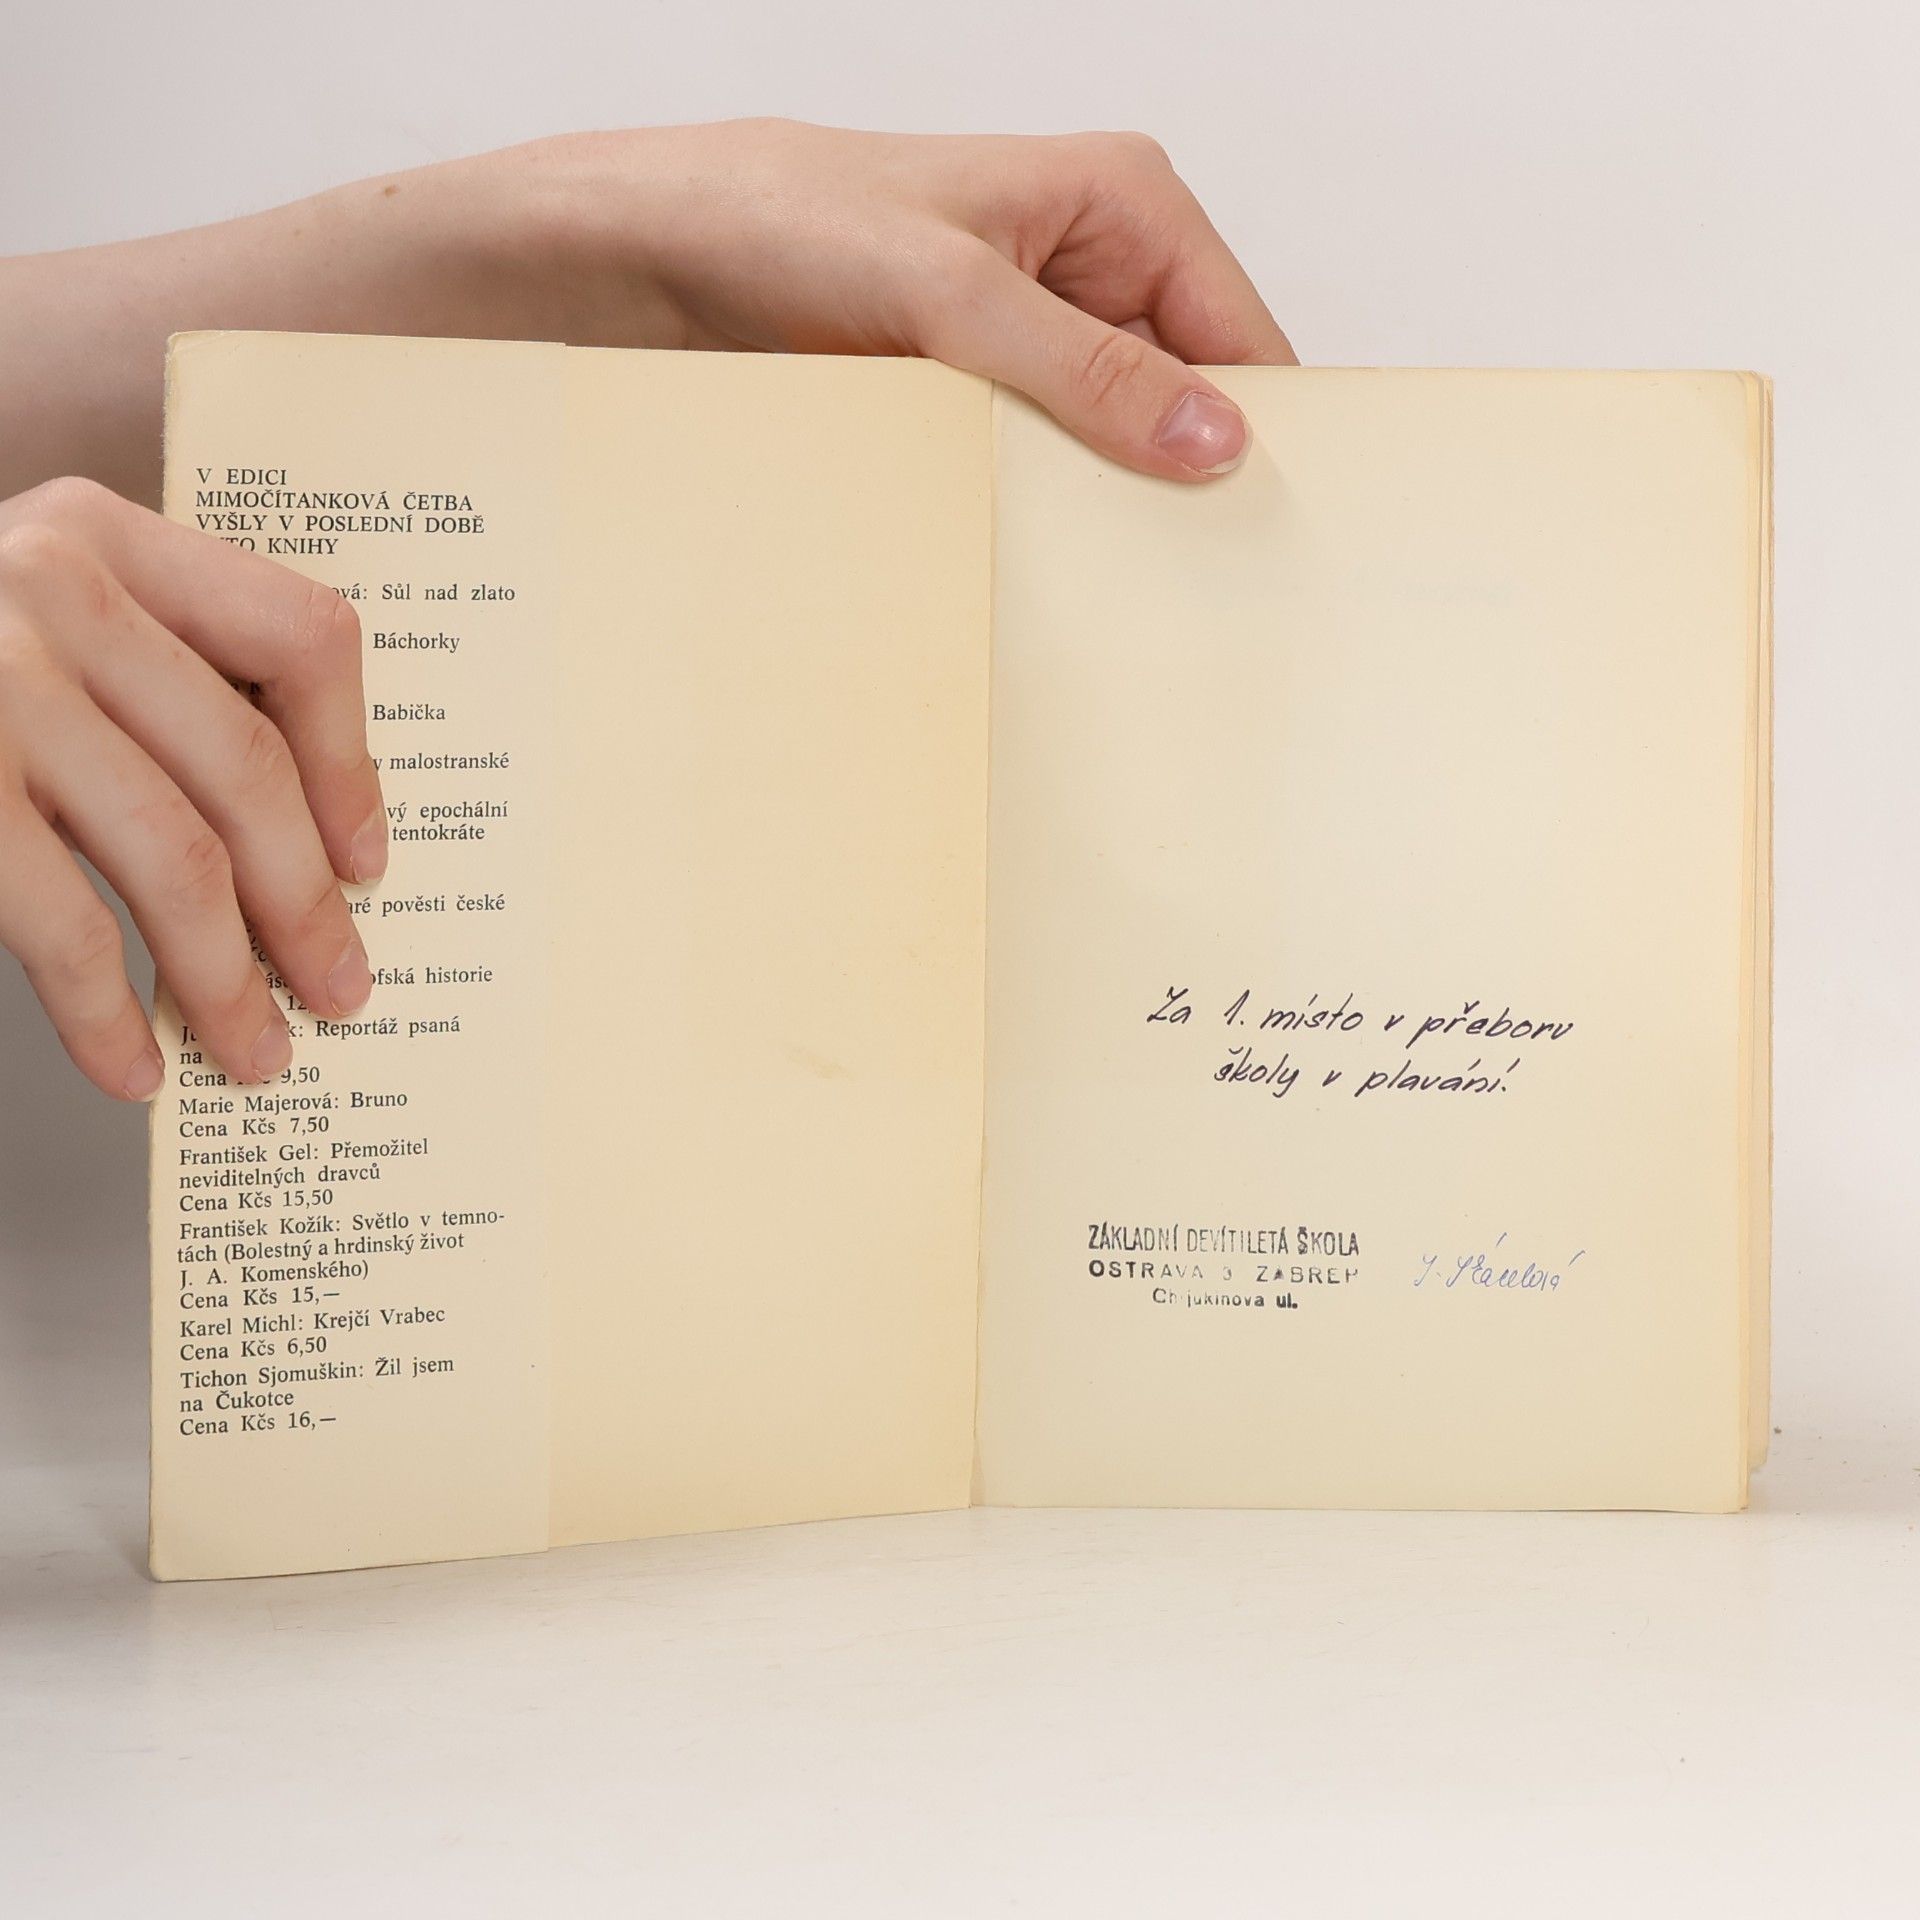 V EDICI
MIMOČÍTANKOVÁ ČETBA
VYŠLY V POSLEDNÍ DOBĚ
KNIHY
Sůl nad zlato
Báchorky
Babička
malostranské
epochální
tentokráte
pověsti české
historie
Reportáž psaná
na
Cena 9,50
Marie Majerová: Bruno
Cena Kčs 7,50
František Gel: Přemožitel
neviditelných dravců
Cena Kčs 15,50
František Kožík: Světlo v temno-
tách (Bolestný a hrdinský život
J. A. Komenského)
Cena Kčs 15,—
Karel Michl: Krejčí Vrabec
Cena Kčs 6,50
Tichon Sjomuškin: Žil jsem
na Čukotce
Cena Kčs 16,—
Za 1. místo v přeboru
školy v plavání!
ZÁKLADNÍ DEVÍTILETÁ ŠKOLA
OSTRAVA 3 ZÁBŘEH
ul.